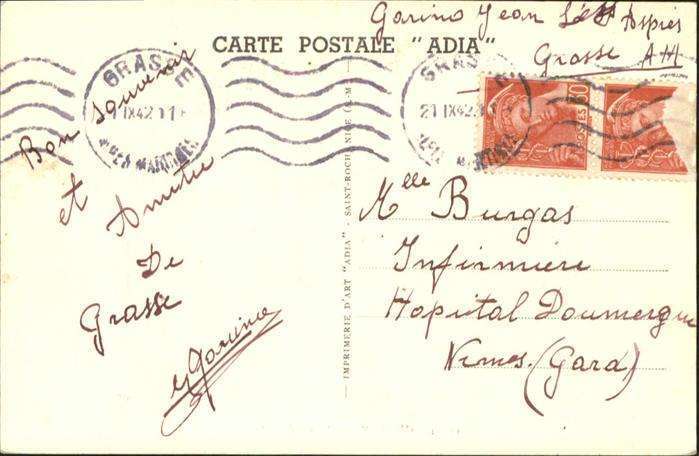 Garino Jean
Aspres
CARTE POSTALE "ADIA"
Grasse AM
GRASSE
21 IX42
ALPES MARITIMES
GRASSE
21 IX42
Bon souvenir
et Amitié
De
Grasse
Garino
IMPRIMERIE D'ART "ADIA" - SAINT-ROCH, NICE (A.-M.)
Mlle Burgas
Infirmière
Hopital Doumergue
Nimes. (Gard)